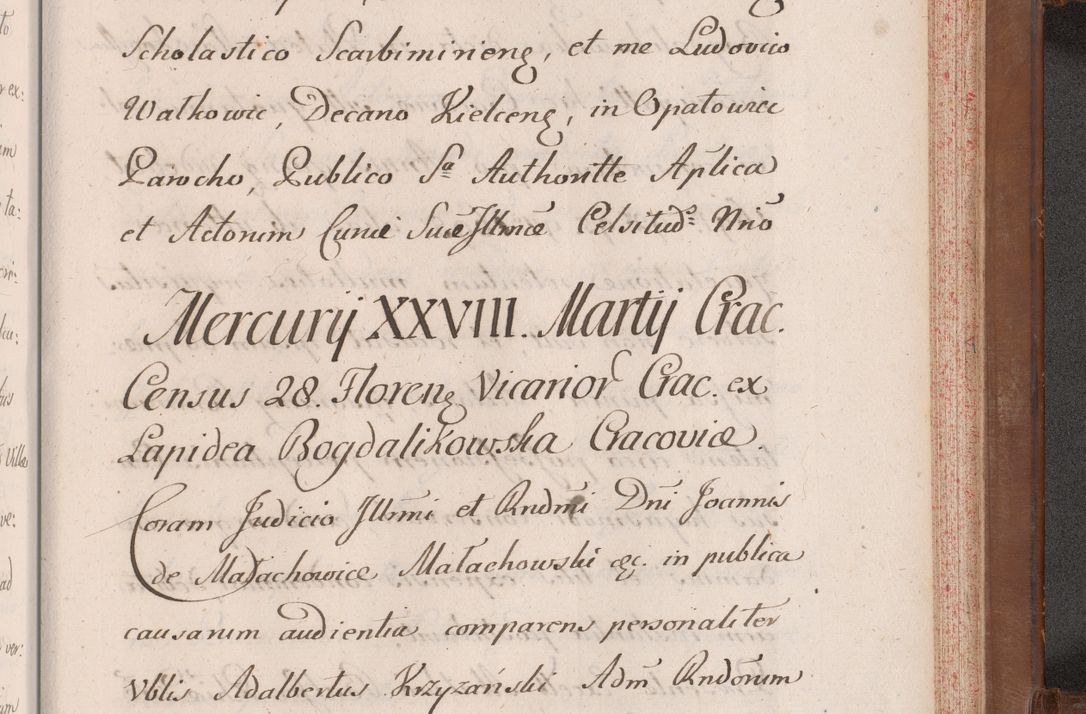 Scholastico Scarbimirieng, et me Ludovico
Watkowic, Decano Kielceng, in Opatowice
Parocho, Publico Sa Authoritte Aplica
et Actorum Curiæ Suæ Illmæ Celsitud: Nrio
Mercurij XXVIII. Martij Crac.
Census 28. Floreng Vicarior Crac. ex
Lapidea Bogdalikowska Cracoviæ.
Coram Judicio Illrmi et Rndmi Dni Joannis
de Małachowice Małachowski &c. in publica
causarum audientia comparens personaliter
Vblis Adalbertus Krzyzański Adm Rndorum